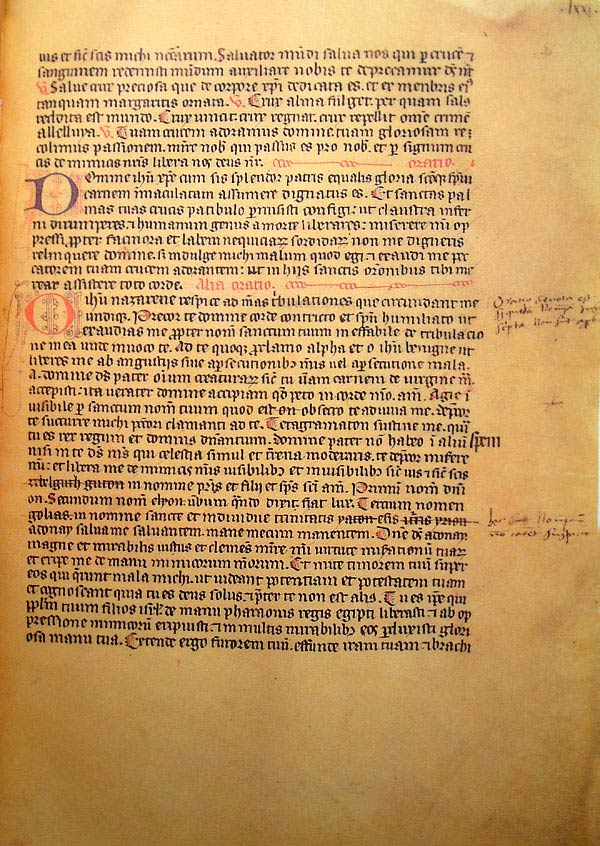 lxxi
uis et sic scis michi necarium. Saluator mundi salua nos qui per crucem et
sanguinem redemisti mundum auxiliare nobis te deprecamur deus nr
V Salue crux preciosa que de corpore xpi dedicata es. et ex menbris eius
tanquam margaritis ornata. V. Crux alma fulget. per quam salus
reddita est mundo. Crux uincit. crux regnat. crux repellit omne crimen
alleluya. V. Tuam crucem adoramus domine. tuam gloriosam re
colimus passionem. misere nobis qui passus es pro nobis. et per signum cru
cis de inimicis nris libera nos deus nr. oratio.
Domine ihu xpe cum sis splendor patris equalis gloria
carnem immaculatam assumere dignatus es. Et sanctas pal
mas tuas crucis patibulo permisisti configi: ut claustra infer
ni dirumperes: et humanum genus a morte liberares: miserere mi op
pressi propter facinora et labem nequiciarum sordidarum non me digneris
relinquere domine. sed indulge michi malum quod egi: et exaudi me pec
catorem tuam crucem adorantem: ut in hijs sanctis orationibus tibi me
rear assistere toto corde. Alia oratio.
O ihu nazarene respice ad meas tribulationes que circumdant me
undique. Precor te domine corde contricto et spiritu humiliato ut
exaudias me propter nomen sanctum tuum ineffabile de tribulatio
ne mea unde inuoco te. Ad te quoque proclamo alpha et o ihu benigne ut
liberes me ab angustijs siue a persecutionibus inimicis uel a persecutione mala.
a. domine deus pater omnium creaturarum sicut tu ueram carnem de uirgine maria
accepisti: ita ueraciter domine accipiam quod peto in corde meo. am. Agie in
uisibile per sanctum nomen tuum quod est on obsecro te adiuua me. deprecor
te succurre michi peccatori clamanti ad te. Tetragramaton sustine me. quia
tu es rex regum et dominus dominantium. domine pater non habeo in alium spem
nisi in te deus meus qui celestia simul et terrena moderaris. te deprecor misere
mei: et libera me de inimicis meis uisibilibus et inuisibilibus sicut uis et sicut scis
in nomine patris et filij et spiritus sancti am. Primum nomen domini
on. Secundum nomen elyon. uerbum quando dixit. fiat lux. Tercium nomen
golias. in nomine sancte et indiuidue trinitatis
adonay salua me saluantem. mane mecum manentem. Domine deus adonay
magne et mirabilis iustus et clemens miserere mei uirtute miserationum tuarum
et eripe me de manu inimicorum meorum. Et mitte timorem tuum super
eos qui querunt mala michi. ut uideant potentiam et potestatem tuam
et cognoscant quia tu es deus solus. et preter te non est alius. Tu es ipse qui
populum tuum filios israhel de manu pharaonis regis egipti liberasti: et ab op
pressione inimicorum eripuisti: et in multis mirabilibus eos perduxisti glori
osa manu tua. Extende ergo furorem tuum. effunde iram tuam et brachi